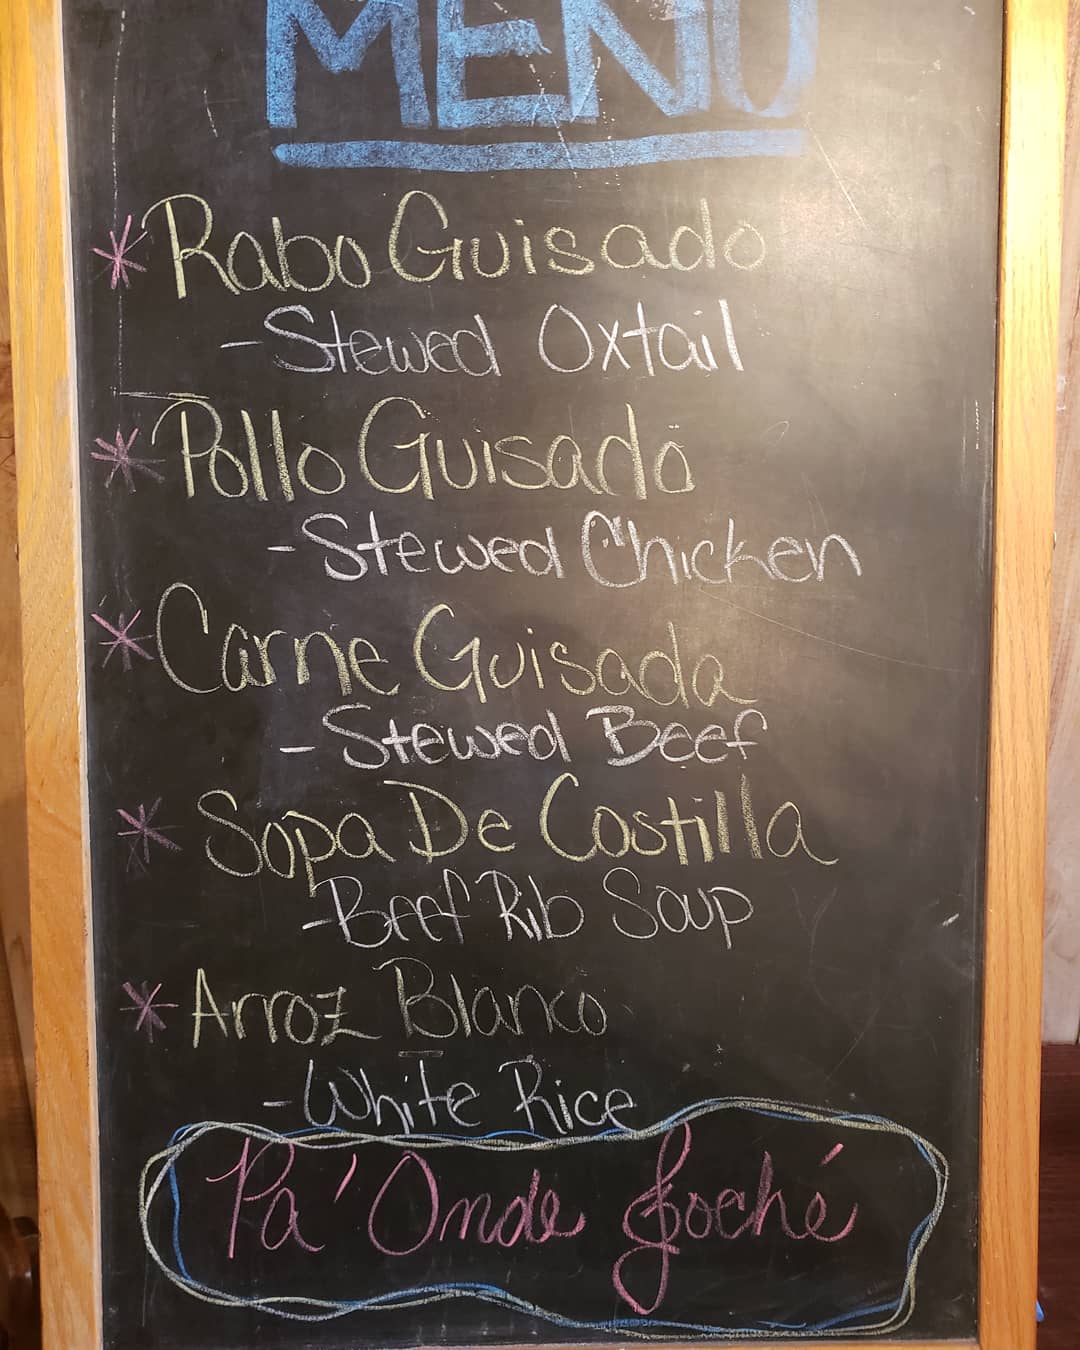 MENU
* Rabo Guisado
- Stewed Oxtail
* Pollo Guisado
- Stewed Chicken
* Carne Guisada
- Stewed Beef
* Sopa De Costilla
- Beef Rib Soup
* Arroz Blanco
- White Rice
Pa' Onde Joché